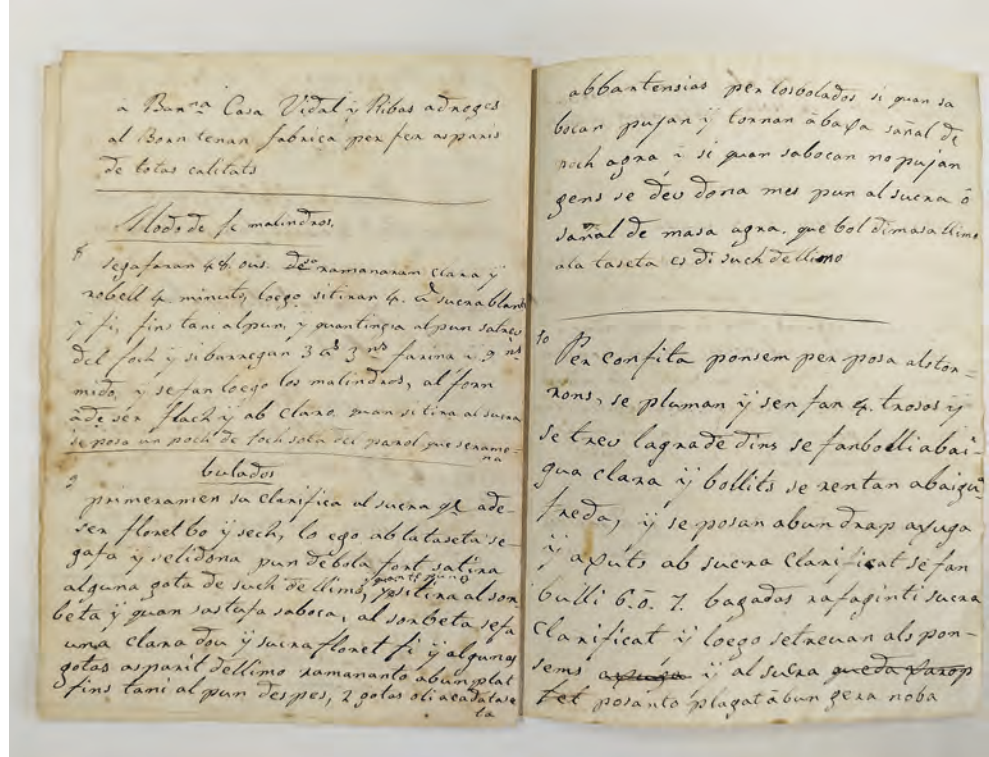 a Barna Casa Vidal ÿ Ribas adroges
al Born tenan fabrica per fer asparis
de totas calitats
Modo de fe malindros.
8
segafaran 48. ous. de so ramanaran clara ÿ
robell 4. minuts, loego sitiran 4. a sucra blanch
ÿ fi, fins tani al pun, ÿ quantingia al pun salreu
del foch ÿ si barregan 3 as 3 ns farina i 9 ns
mido, ÿ se fan loego los malindros, al forn
ade ser flach ÿ ab claro. quan si tira al sucra
se posa un poch de foch sota del parol que serame-
na
bulados
9
primeramen sa clarifica al sucra qe ade
ser floret bo ÿ sech, lo ego ab lataseta se
gafa ÿ selidona pun de bola fort satira
alguna gota de such de llimó, ÿ sitira al sor-
beta ÿ quan sastufa saboca, al sorbeta sefa
una clara dou ÿ sucra floret fi ÿ algunas
gotas asparit dellimo ramananto abun plat
fins tani al pun despes, 2 gotas oli acadatase
ta
abbartensias per losbolados si quan sa
bocan pujan ÿ tornan ábaxa sañal de
poch agra i si quan sabocan no pujan
gens se deu dona mes pun al sucra ó
sañal de masa agra. que bol di masa llimo
ala taseta es di such dellimo
10
Per confita ponsem per posa alstor=
rons, se pluman ÿ sen fan 4. trosos ÿ
se treu lagra de dins se fan bolli abai-
gua clara ÿ bollits se rentan abaigua
freda, ÿ se posan abun drap axuga
ÿ axúts ab sucra clarificat se fan
bulli 6. ó. 7. bagadas rafaginti sucra
clarificat ÿ loego setreuan als pon-
sems axuga ÿ al sucra queda xarop
fet posanto plagat ábun gera noba